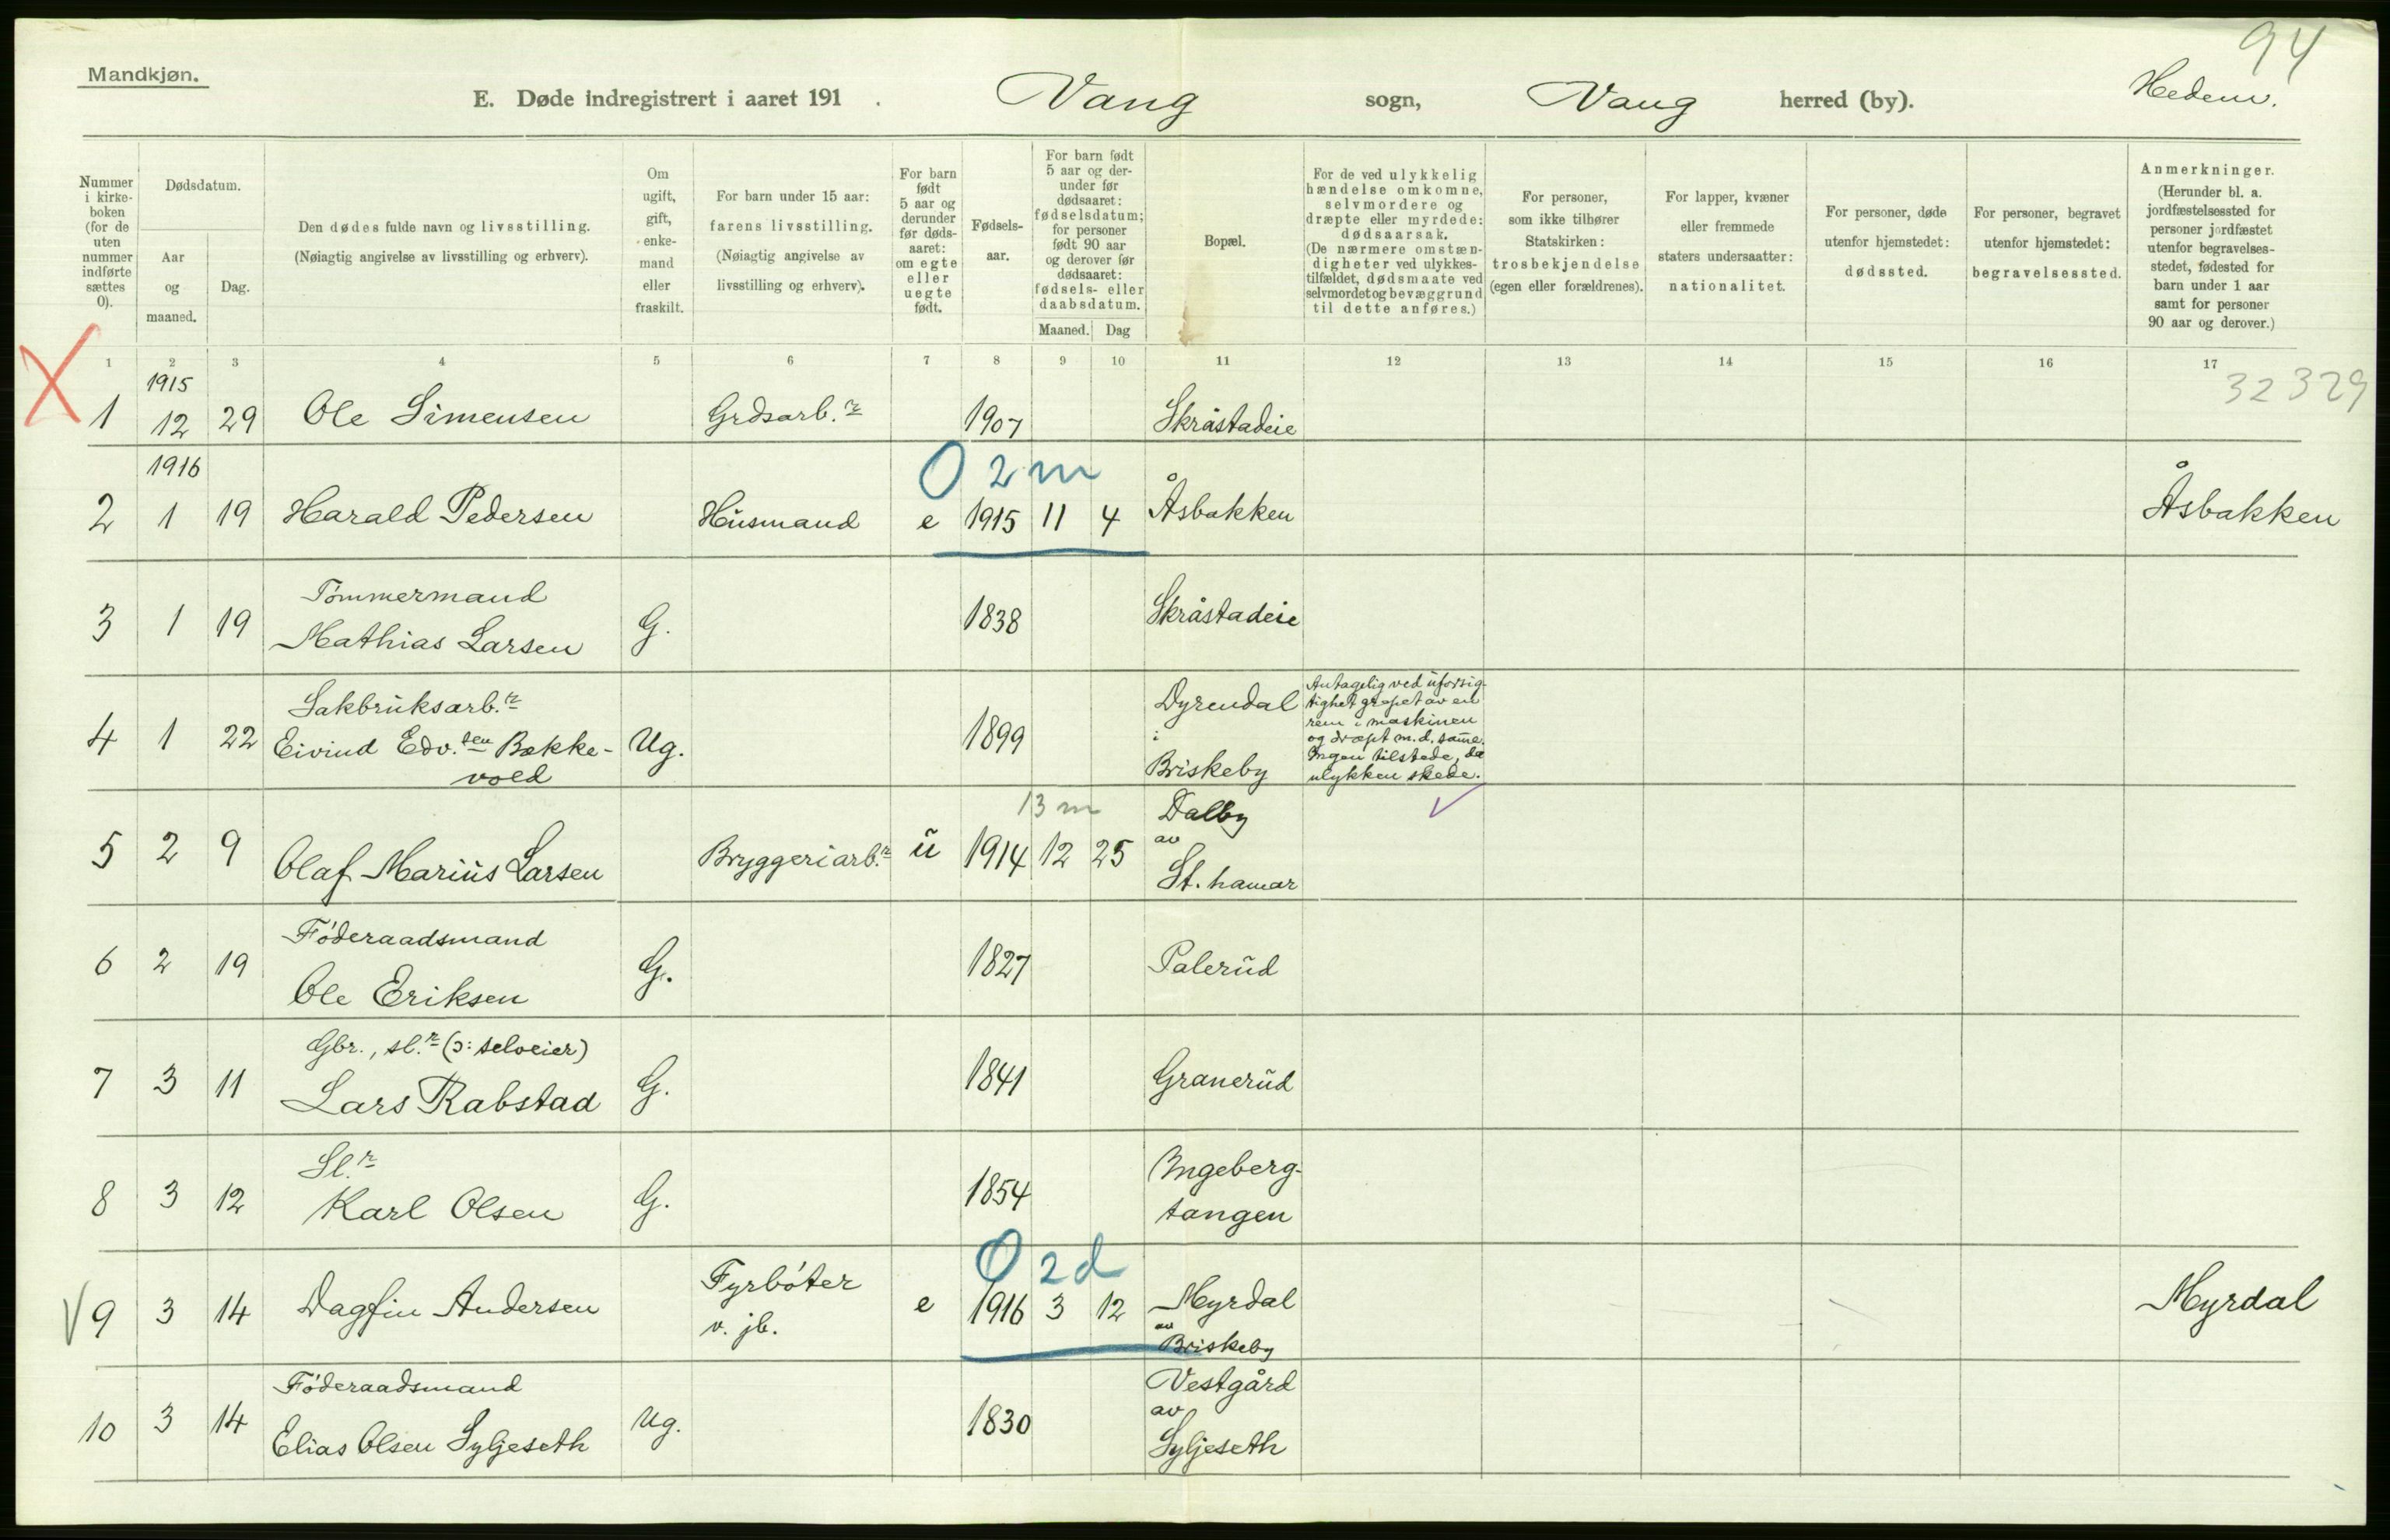 94
Mandkjøn.
E. Døde indregistrert i aaret 191 . Vang sogn, Vang herred (by). Hedem.
Nummer i kirke-boken (for de uten nummer indførte sættes 0).
Dødsdatum.
Aar og maaned.
Dag.
Den dødes fulde navn og livsstilling.
(Nøiagtig angivelse av livsstilling og erhverv).
Om ugift, gift, enke-mand eller fraskilt.
For barn under 15 aar: farens livsstilling.
(Nøiagtig angivelse av livsstilling og erhverv).
For barn født 5 aar og derunder før døds-aaret: om egte eller uegte født.
Fødsels-aar.
For barn født 5 aar og der-under før dødsaaret: fødselsdatum; for personer født 90 aar og derover før dødsaaret: fødsels- eller daabsdatum.
Maaned. Dag
Bopæl.
For de ved ulykkelig hændelse omkomne, selvmordere og dræpte eller myrdede: dødsaarsak.
(De nærmere omstæn-digheter ved ulykkes-tilfældet, dødsmaate ved selvmordet og bevæggrund til dette anføres.)
For personer, som ikke tilhører Statskirken: trosbekjendelse (egen eller forældrenes).
For lapper, kvæner eller fremmede staters undersaatter: nationalitet.
For personer, døde utenfor hjemstedet: dødssted.
For personer, begravet utenfor hjemstedet: begravelsessted.
Anmerkninger.
(Herunder bl. a. jordfæstelsessted for personer jordfæstet utenfor begravelses-stedet, fødested for barn under 1 aar samt for personer 90 aar og derover.)
1 2 3 4 5 6 7 8 9 10 11 12 13 14 15 16 17
X 1915 32329
1 12 29 Ole Simensen Grdsarb.r 1907 Skråstadeie
1916 0 2m
2 1 19 Harald Pedersen Husmand e 1915 11 4 Åsbakken Åsbakken
Tømmermand
3 1 19 Mathias Larsen G. 1838 Skråstadeie
Sakbruksarb.r
4 1 22 Eivind Edv.sen Bække-vold Ug. 1899 Dyrendal i Briskeby
Antagelig ved uforsig-
tighet grepet av en
rem i maskinen
og dræpt m.d. samme.
Ingen tilstede, da
ulykken skede.
13 m
5 2 9 Olaf Marius Larsen Bryggeriarb.r u 1914 12 25 Dalby av St. hamar
Føderaadsmand
6 2 19 Ole Eriksen G. 1827 Palerud
Gbr., sl.r (ɔ: selveier)
7 3 11 Lars Rabstad G. 1841 Granerud
Sl.r
8 3 12 Karl Olsen G. 1854 Ingeberg-tangen
0 2d
9 3 14 Dagfin Andersen Fyrbøter v. jb. e 1916 3 12 Myrdal av Briskeby Myrdal
Føderaadsmand
10 3 14 Elias Olsen Syljeseth Ug. 1830 Vestgård av Syljeseth